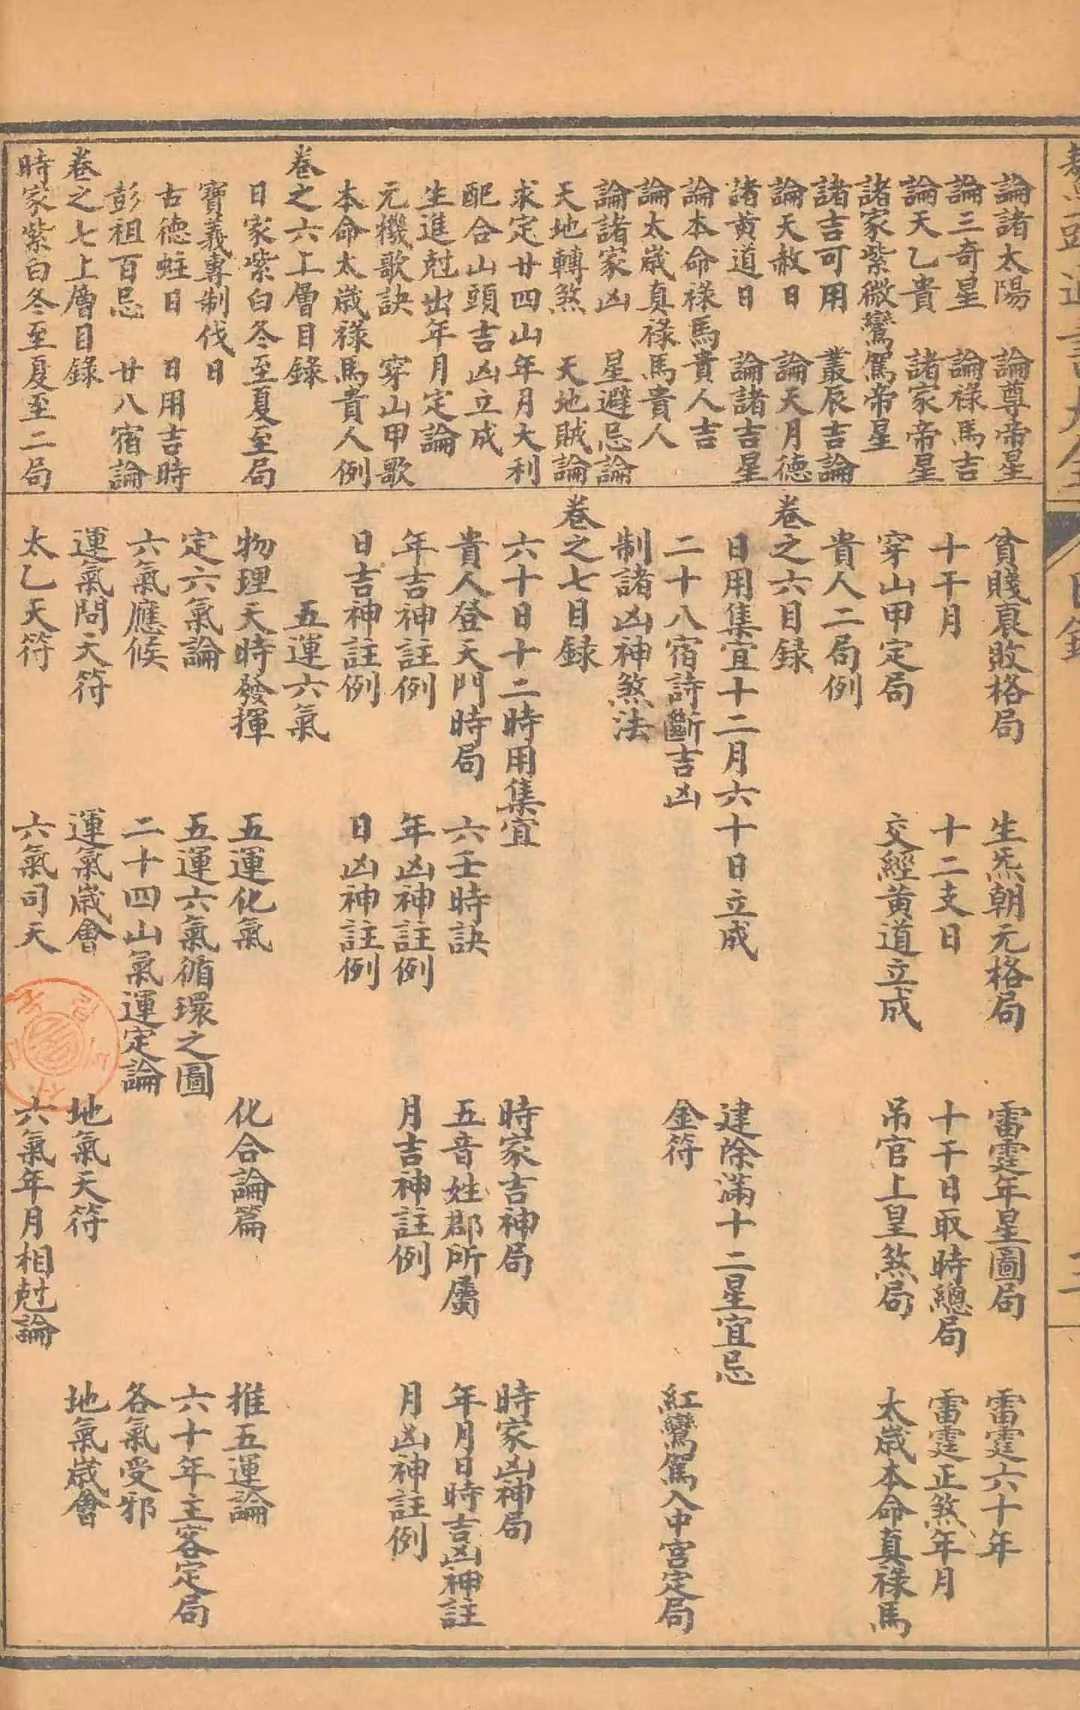 論諸太陽　論尊帝星
論三奇星　論祿馬吉
論天乙貴　諸家帝星
諸家紫微鸞駕帝星
諸吉可用　叢辰吉論
論天赦日　論天月德
諸黃道日　論諸吉星
論本命祿馬貴人吉
論太歲真祿馬貴人
論諸家凶　星避忌論
天地轉煞　天地賊論
求定廿四山年月大利
配合山頭吉凶立成
生進尅出年月定論
元機歌訣　穿山甲歌
本命太歲祿馬貴人例
卷之六上層目錄
日家紫白冬至夏至局
寶義專制伐日
古德蛀日　日用吉時
彭祖百忌　廿八宿論
卷之七上層目錄
時家紫白冬至夏至二局
貧賤衰敗格局　生炁朝元格局　雷霆年星圖局　雷霆六十年
十干月　十二支日　十干日取時總局　雷霆正煞年月
穿山甲定局　交經黃道立成　吊官上皇煞局　太歲本命真祿馬
貴人二局例
卷之六目錄
日用集宜十二月六十日立成　建除滿十二星宜忌
二十八宿詩斷吉凶　金符　紅鸞駕入中宮定局
制諸凶神煞法
卷之七目錄
六十日十二時用集宜　時家吉神局　時家凶神局
貴人登天門時局　六壬時訣　五音姓郡所屬　年月日時吉凶神註
年吉神註例　年凶神註例　月吉神註例　月凶神註例
日吉神註例　日凶神註例
五運六氣
物理天時發揮　五運化氣　化合論篇　推五運論
定六氣論　五運六氣循環之圖　六十年主客定局
六氣應候　二十四山氣運定論　各氣受邪
運氣問天符　運氣歲會　地氣天符　地氣歲會
太乙天符　六氣司天　六氣年月相尅論